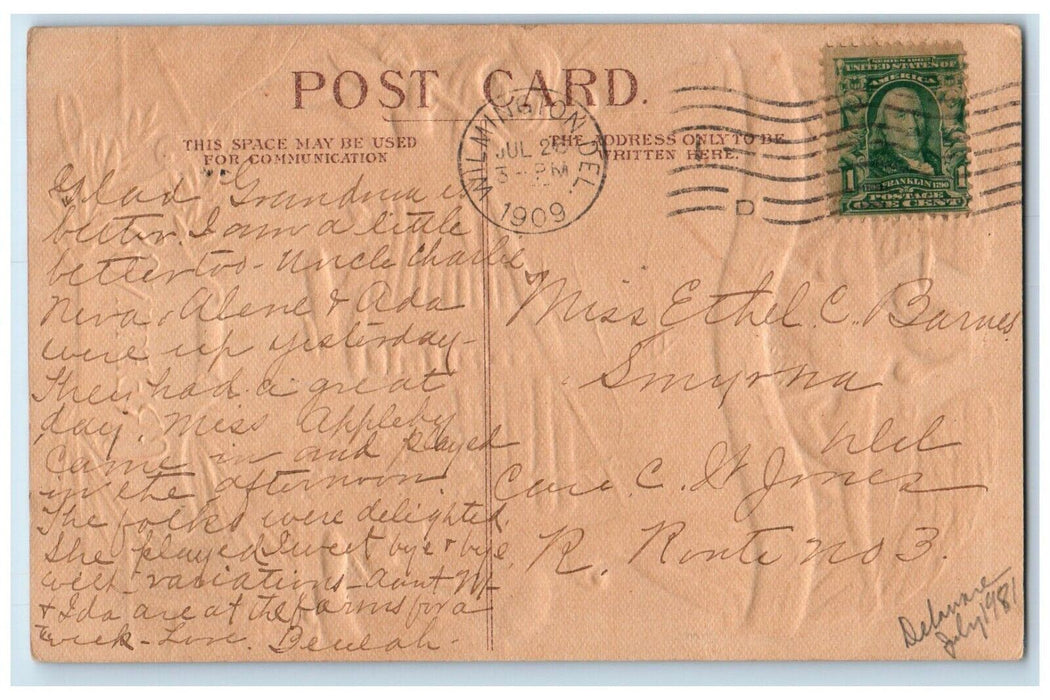 POST CARD.
THIS SPACE MAY BE USED
FOR COMMUNICATION
THE ADDRESS ONLY TO BE
WRITTEN HERE.
WILMINGTON, DEL.
JUL 2
3 - PM
1909
D
SERIES 1902
UNITED STATES OF
AMERICA
1706 FRANKLIN 1790
1 POSTAGE 1
ONE CENT
Glad Grandma is
better. I am a little
better too - Uncle Charlie,
Neva, Alene & Ada
were up yesterday -
They had a great
day. Miss Appleby
came in and played
in the afternoon
The folks were delighted.
She played Sweet bye & bye
with variations - Aunt M -
& Ida are at the farms for a
week - Love. Beulah -
Miss Ethel C. Barnes
Smyrna
Del
Care C. H Jones
R. Route no 3.
Delaware
July 1981